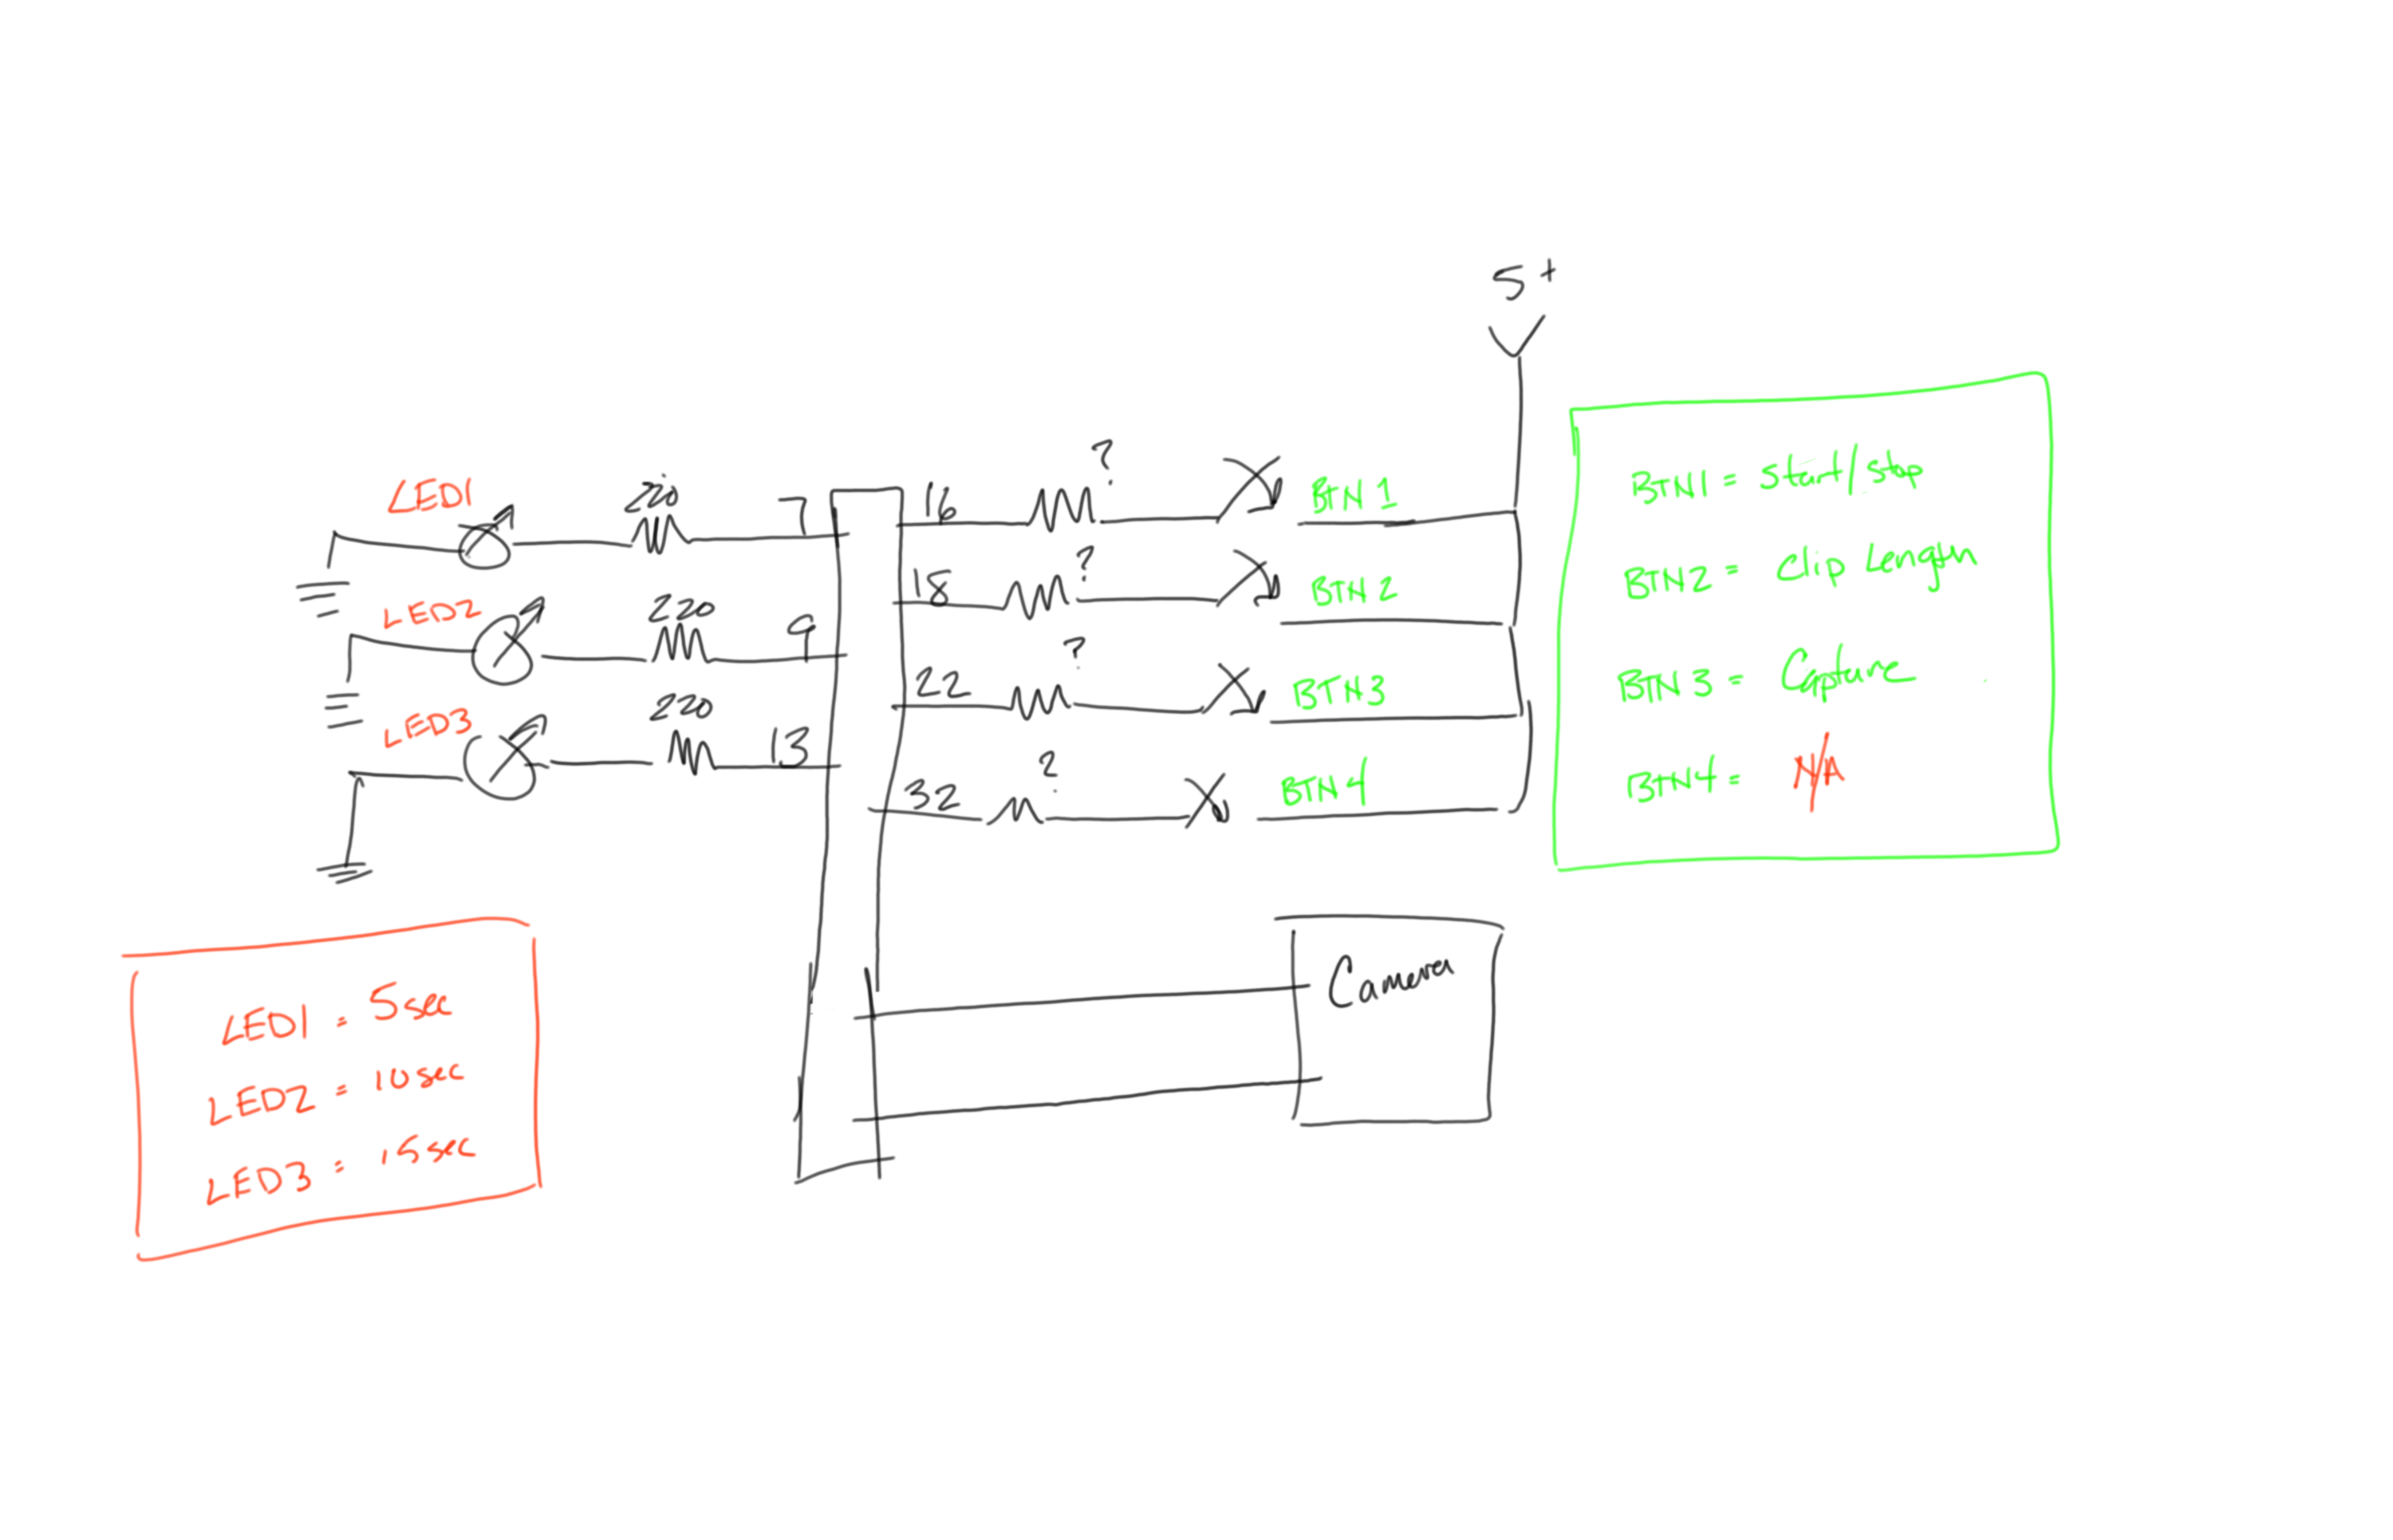 5+
LED1
220
7
16
?
BTN 1
LED2
220
9
18
?
BTN 2
LED3
220
13
22
?
BTN3
32
?
BTN4
BTN1 = Start/stop
BTN2 = Clip Length
BTN3 = Capture
BTN4 = N/A
Camera
LED1 = 5sec
LED2 = 10sec
LED3 = 15sec